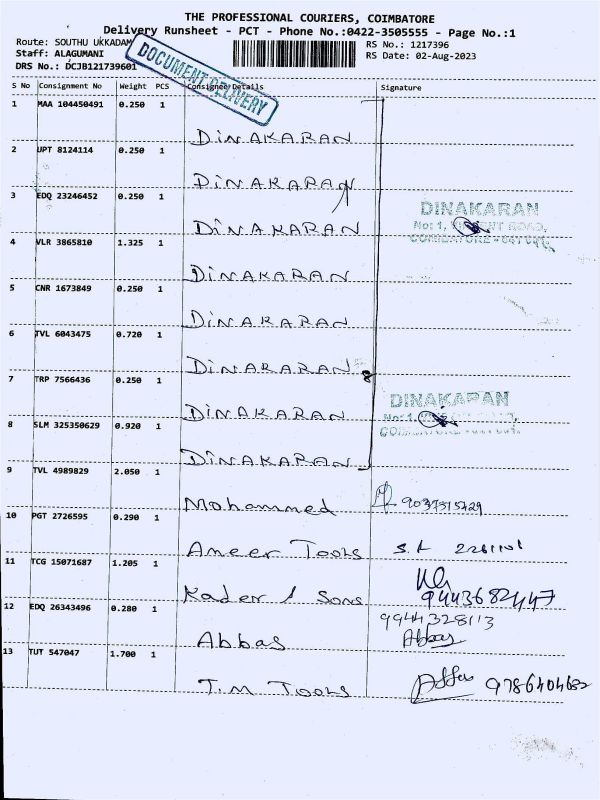 THE PROFESSIONAL COURIERS, COIMBATORE
Delivery Runsheet - PCT - Phone No.:0422-3505555 - Page No.:1
Route: SOUTHU UKKADAM
RS No.: 1217396
Staff: ALAGUMANI
RS Date: 02-Aug-2023
DRS No.: DCJB121739601
DOCUMENT DELIVERY
S No Consignment No Weight PCS Consignee Details Signature
1 MAA 104450491 0.250 1
DINAKARAN
2 UPT 8124114 0.250 1
DINAKARAN
3 EDQ 23246452 0.250 1
DINAKARAN
DINAKARAN
No: 1, ROAD,
COIMBATORE -
4 VLR 3865810 1.325 1
DINAKARAN
5 CNR 1673849 0.250 1
DINAKARAN
6 TVL 6043475 0.720 1
DINAKARAN
8
7 TRP 7566436 0.250 1
DINAKARAN
DINAKARAN
No: 1,
8 SLM 325350629 0.920 1
DINAKARAN
9 TVL 4989829 2.050 1
Mohammed
10 PGT 2726595 0.290 1
Ameer Tools
11 TCG 15071687 1.205 1
Kader & Sons 9443682447
12 EDQ 26343496 0.280 1
9944328113
Abbas Abbas
13 TUT 547047 1.700 1
T.M Tools